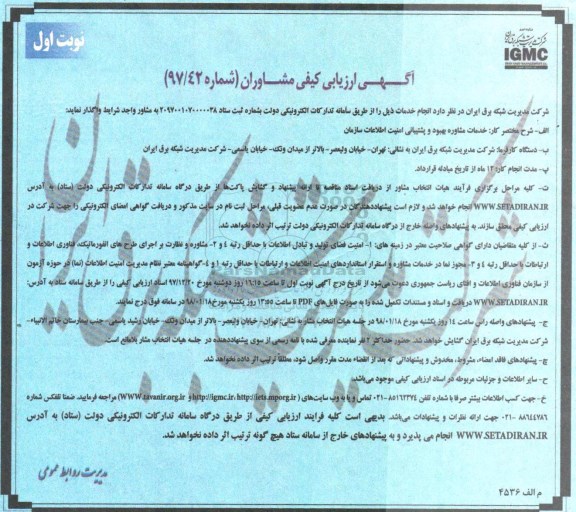 نوبت اول
شرکت مدیریت شبکه برق ایران
IGMC
آگهی ارزیابی کیفی مشاوران (شماره ۹۷/۴۲)
شرکت مدیریت شبکه برق ایران در نظر دارد انجام خدمات ذیل را از طریق سامانه تدارکات الکترونیکی دولت بشماره ثبت ستاد ۲۰۹۷۰۰۱۰۷۰۰۰۰۰۳۸ به مشاور واجد شرایط واگذار نماید:
الف- شرح مختصر کار: خدمات مشاوره بهبود و پشتیبانی امنیت اطلاعات سازمان
ب- دستگاه کارفرما: شرکت مدیریت شبکه برق ایران به نشانی: تهران- خیابان ولیعصر- بالاتر از میدان ونک- خیابان یاسمی- شرکت مدیریت شبکه برق ایران
پ- مدت انجام کار: ۱۲ ماه از تاریخ مبادله قرارداد.
ت- کلیه مراحل برگزاری فرآیند هیات انتخاب مشاور از دریافت اسناد مناقصه تا ارائه پیشنهاد و گشایش پاکت‌ها از طریق درگاه سامانه تدارکات الکترونیکی دولت (ستاد) به آدرس
WWW.SETADIRAN.IR انجام خواهد شد و لازم است پیشنهاددهندگان در صورت عدم عضویت قبلی، مراحل ثبت نام در سایت مذکور و دریافت گواهی امضای الکترونیکی را جهت شرکت در
ارزیابی کیفی محقق سازند. به پیشنهادهای واصله خارج از درگاه سامانه تدارکات الکترونیکی دولت ترتیب اثر داده نخواهد شد.
ث- از کلیه متقاضیان دارای گواهی صلاحیت معتبر در زمینه های: ۱- امنیت فضای تولید و تبادل اطلاعات با حداقل رتبه ۴ و ۲- مشاوره و نظارت بر اجرای طرح های انفورماتیک، فناوری اطلاعات و
ارتباطات با حداقل رتبه ۴ و ۳- مجوز نما در خدمات مشاوره و استقرار استانداردهای امنیت اطلاعات و ارتباطات با حداقل رتبه ۱ و ۴-گواهینامه معتبر نظام مدیریت امنیت اطلاعات (نما) در حوزه آزمون
از سازمان فناوری اطلاعات و افتای ریاست جمهوری دعوت می‌شود از تاریخ درج آگهی نوبت اول تا ساعت ۱۶:۱۵ روز دوشنبه مورخ ۹۷/۱۲/۲۰ اسناد ارزیابی کیفی را از طریق سامانه ستاد به آدرس
WWW.SETADIRAN.IR دریافت و اسناد و مستندات تکمیل شده را به صورت فایل های PDF تا ساعت ۱۳:۵۵ روز یکشنبه مورخ ۹۸/۰۱/۱۸ در سامانه فوق درج نمایند.
ج- پیشنهادهای واصله راس ساعت ۱۴ روز یکشنبه مورخ ۹۸/۰۱/۱۸ در جلسه هیات انتخاب مشاور به نشانی: تهران- خیابان ولیعصر- بالاتر از میدان ونک- خیابان رشید یاسمی- جنب بیمارستان خاتم الانبیاء-
شرکت مدیریت شبکه برق ایران گشایش خواهد شد. حضور حداکثر ۲ نفر نماینده معرفی شده با نامه رسمی از سوی پیشنهاددهنده در جلسه هیات انتخاب مشاور بلامانع است.
چ- پیشنهادهای فاقد امضاء، مشروط، مخدوش و پیشنهاداتی که بعد از انقضاء مدت مقرر واصل شود، مطلقا ترتیب اثر داده نخواهد شد.
ح- سایر اطلاعات و جزئیات مربوطه در اسناد ارزیابی کیفی موجود می‌باشد.
خ- جهت کسب اطلاعات بیشتر صرفا با شماره تلفن ۸۵۱۶۲۳۷۴-۰۲۱ تماس و یا به وب سایت‌های (http://igmc.ir، http://iets.mporg.ir و WWW.tavanir.org.ir) مراجعه فرمایید. ضمنا تلفکس شماره
۸۸۶۴۴۷۸۶ -۰۲۱ جهت ارائه نظرات و پیشنهادات می‌باشد. بدیهی است کلیه فرایند ارزیابی کیفی از طریق درگاه سامانه تدارکات الکترونیکی دولت (ستاد) به آدرس
WWW.SETADIRAN.IR انجام می پذیرد و به پیشنهادهای خارج از سامانه ستاد هیچ گونه ترتیب اثر داده نخواهد شد.
مدیریت روابط عمومی
م الف ۴۵۳۶